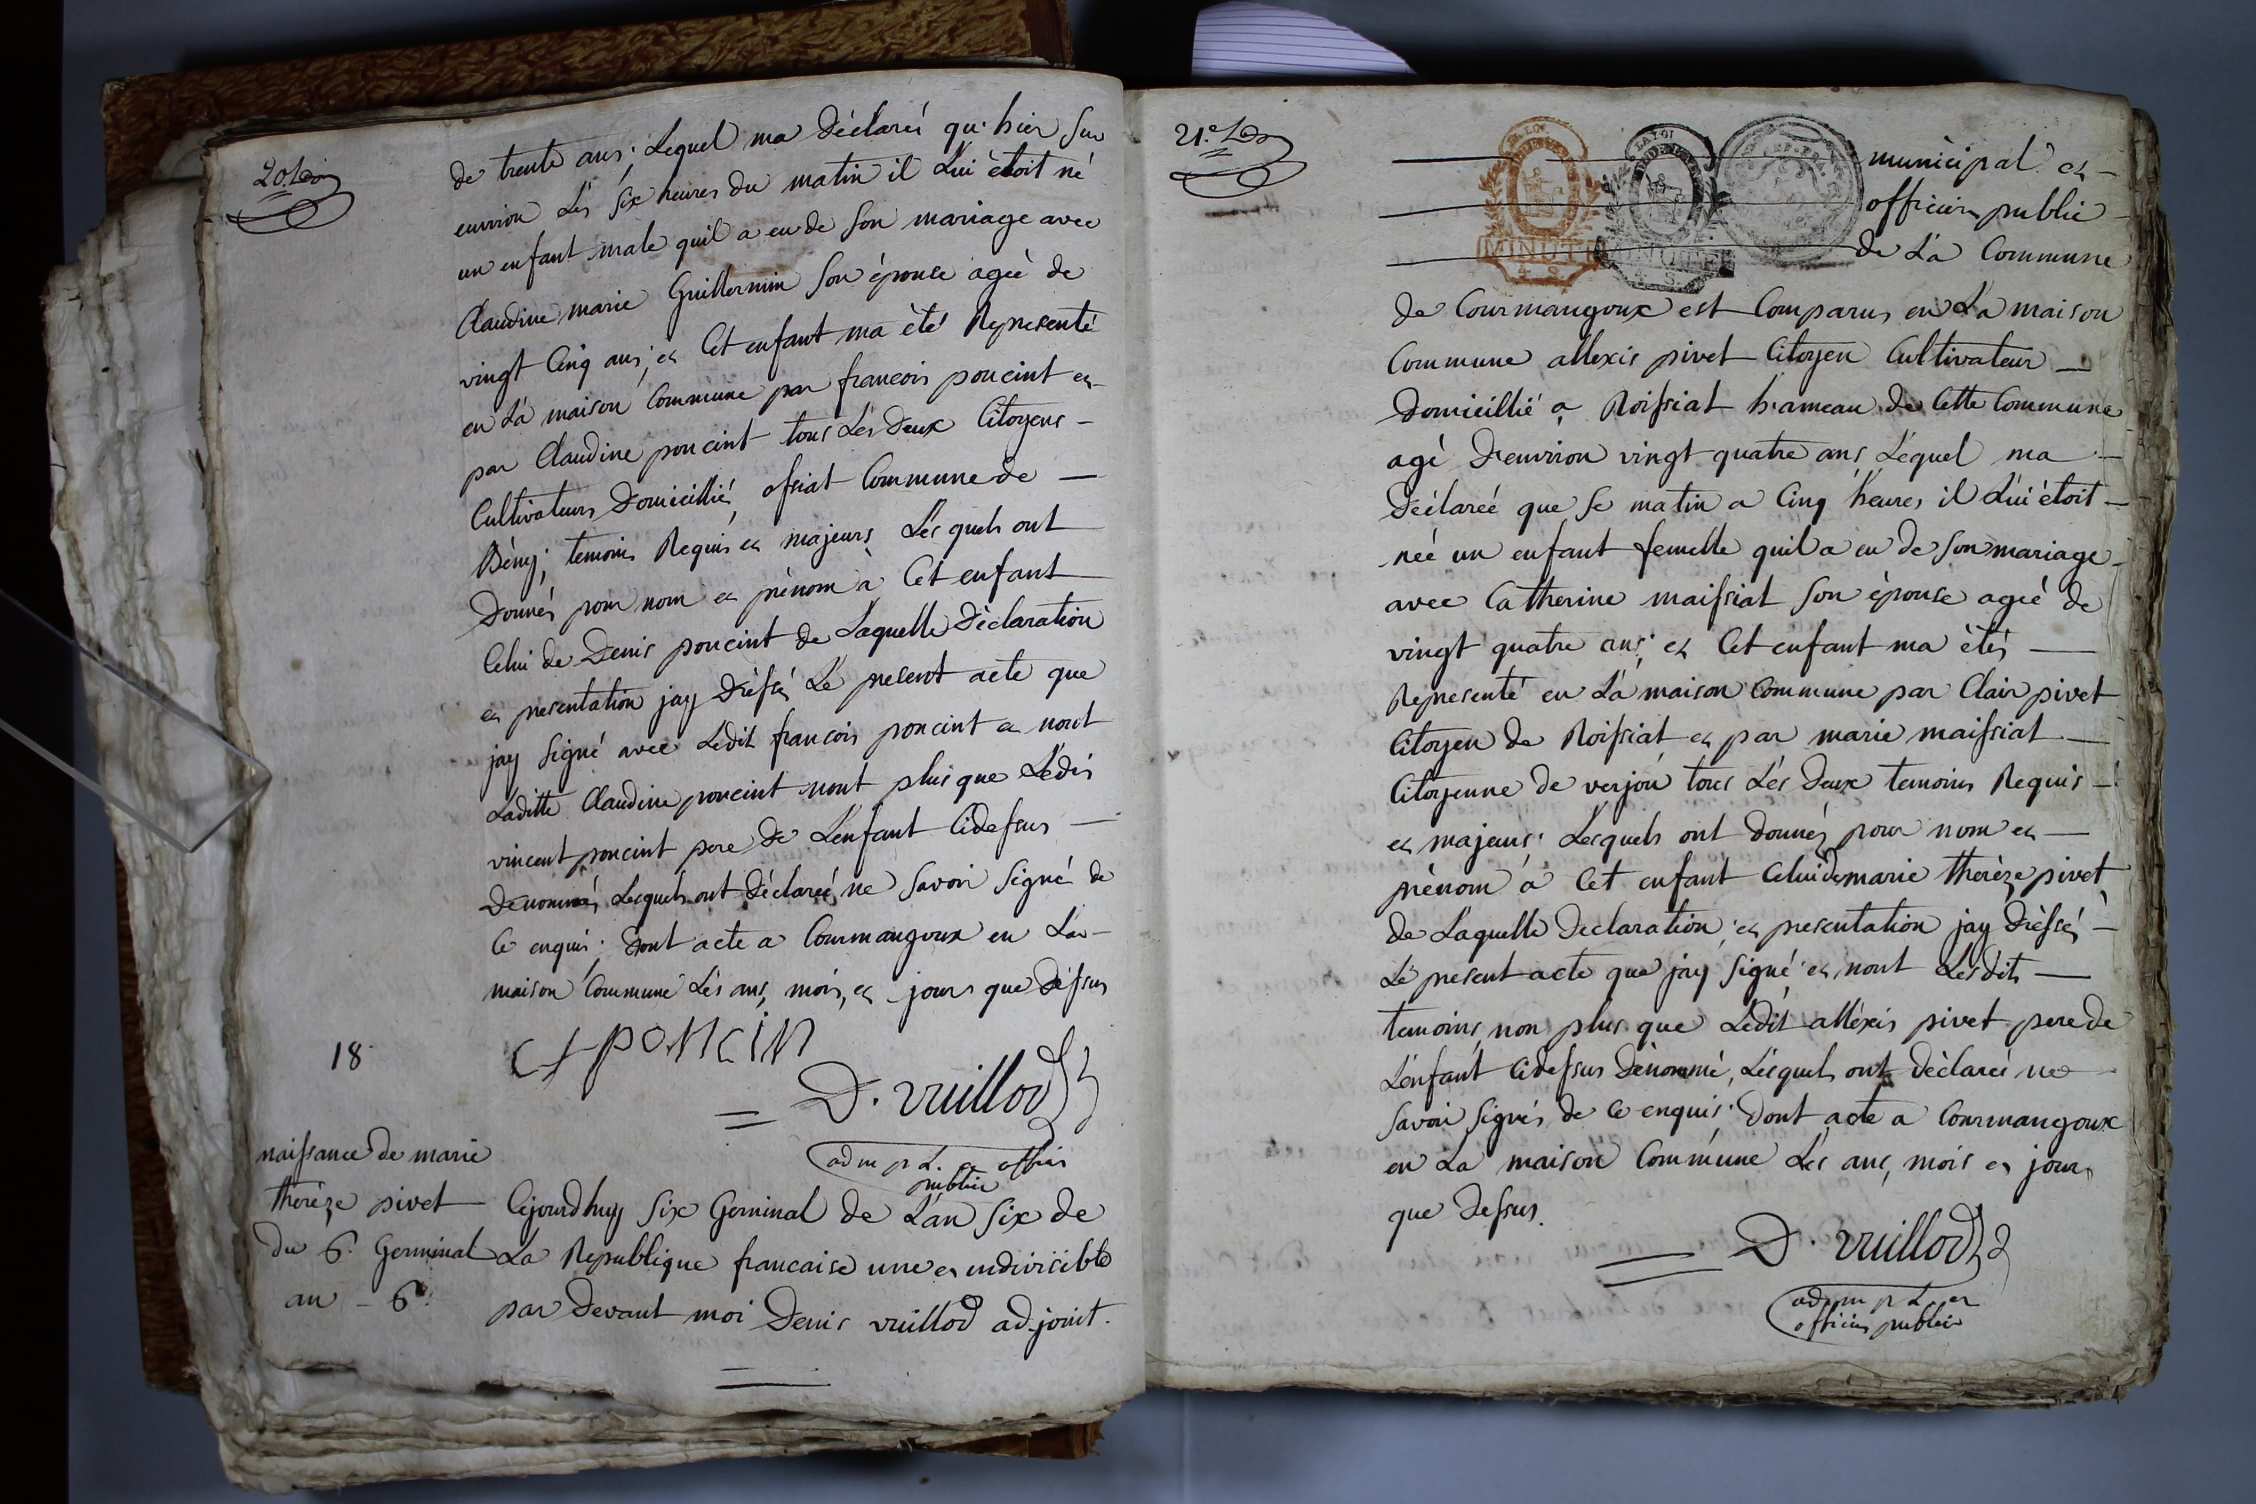 20.e
de trente ans; Lequel ma déclareé qu'hier Sur
environ Lés six heures du matin il Lui ètoit né
un enfant male quil a eu de son mariage avec
Claudine marie Guillermin son épouse ageè de
vingt Cinq ans; et Cet enfant ma èté Representé
en Lá maison Commune par francois poncint et
par Claudine poncint tous Lés deux Citoyens -
Cultivateurs Domicilliés ofsiat Commune de —
Bény; temoins Requis et majeurs Lésquels ont
Donnés pour nom et prénom à Cet enfant
Celui de Denis poncint de Laquelle Déclaration
et presentation jay Dréssé Lé present acte que
jay signé avec Lédit francois poncint et nont
Laditte Claudine poncint nont plus que Lédit
vincent poncint pere de L'enfant Cidessus —
Denommés Lesquels ont déclareé ne Savoir Signé de
Ce enquis; Dont acte a Courmangoux en La -
maison Commune Lés ans, mois, et jours que Dessus
ponCin
18
= D. vuillod
adm p L. et officier
public
naissance de marie
thérèze pivet
du 6. Germinal
an - 6.
Cejourdhuy Six Germinal de L'an Six de
La Republique francaise une et indivisible
par Devant moi Denis vuillod adjoint.
21.e
LA LOI
MINUTE
4. S.
LA LOI
MINUTE
4. S.
municipal et -
officier public -
de Lá Commune
de Courmangoux est Comparus en La maison
Commune allexis pivet Citoyen Cultivateur —
Domicillié a Roissiat hameau de Cette Commune
agé D'environ vingt quatre ans Léquel ma -
Déclareé que Se matin a Cinq heures il Lui ètoit -
neé un enfant femelle quil a eu de Son mariage -
avec Catherine maissiat Son épouse ageé de
vingt quatre ans; et Cet enfant ma étés —
Representé en Lá maison Commune par Clair pivet
Citoyen de Roissiat et par marie maissiat —
Citoyenne de verjou tous Lés Deux temoins Requis -
et majeurs; Lesquels ont Donnés pour nom et —
prénom à Cet enfant Celui de marie thérèze pivet
de Laquelle Déclaration; et presentation jay Dréssé -
Lé present acte que jay signé et nont Lesdits —
temoins, non plus que Lédit alléxis pivet pere de
L'enfant Cidessus Dénommé, Lésquels ont Déclareé ne
Savoir Signés de Ce enquis; Dont acte a Courmangoux
en La maison Commune Lés ans, mois et jours
que Dessus.
= D. vuillod
adjm p L et
officier public